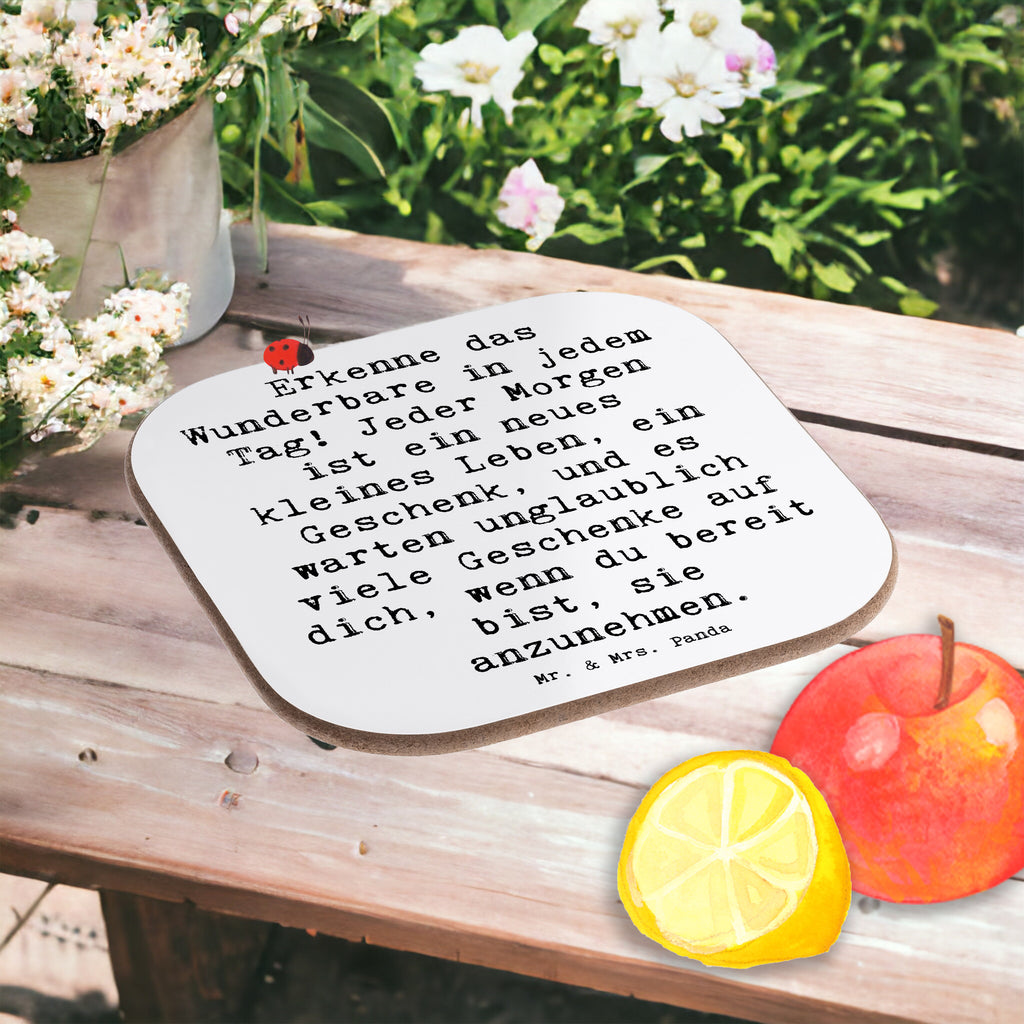 Erkenne das
Wunderbare in jedem
Tag! Jeder Morgen
ist ein neues
kleines Leben, ein
Geschenk, und es
warten unglaublich
viele Geschenke auf
dich, wenn du bereit
bist, sie
anzunehmen.
Mr. & Mrs. Panda